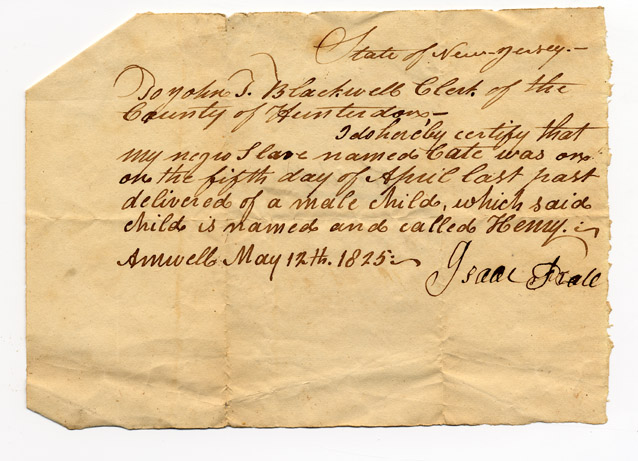 State of New-Jersey.-
To John T. Blackwell Clerk of the
County of Hunterdon-
I do hereby certify that
my negro Slave named Cate was on
on the fifth day of April last past
delivered of a male child, which said
child is named and called Henry.
Amwell May 12th. 1825
Isaac Prall